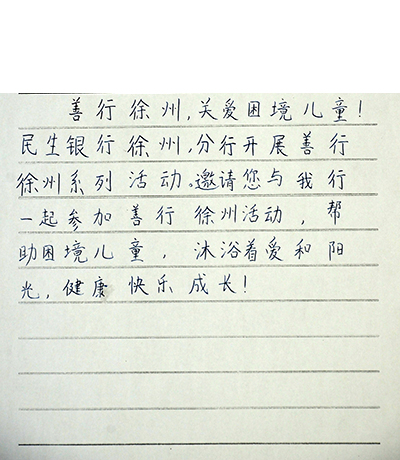 善行徐州,关爱困境儿童!
民生银行徐州,分行开展善行
徐州系列活动。邀请您与我行
一起参加善行徐州活动,帮
助困境儿童,沐浴着爱和阳
光,健康快乐成长!